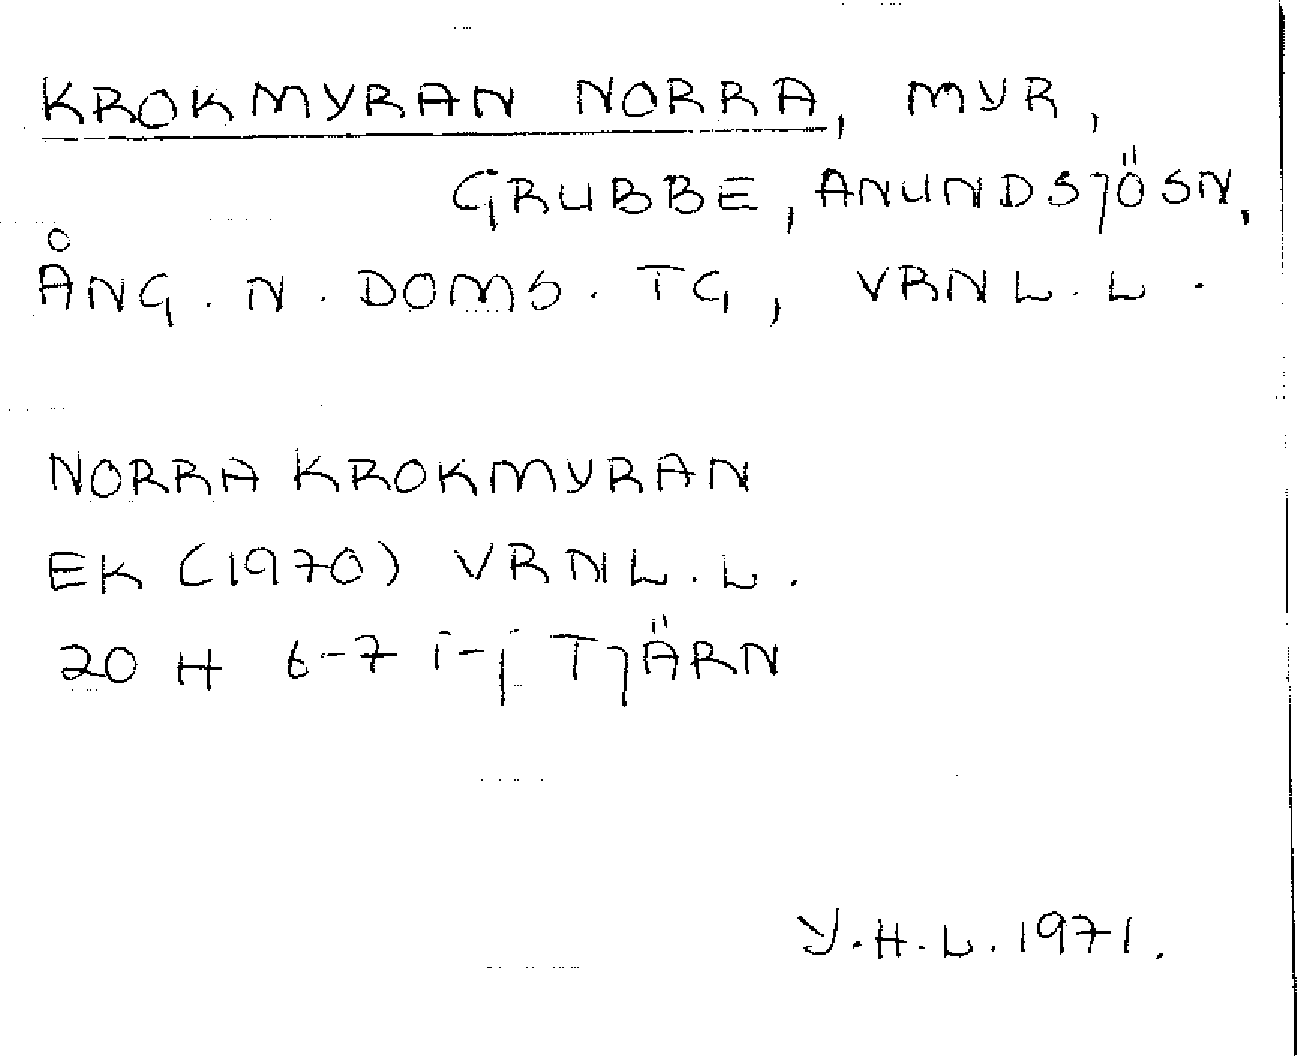 KROKMYRAN NORRA, MYR,
GRUBBE, ANUNDSJÖSN,
ÅNG. N. DOMS. TG, VRNL. L.
NORRA KROKMYRAN
EK (1970) VRNL. L.
20 H 6-7 i-j TJÄRN
Y.H.L. 1971.